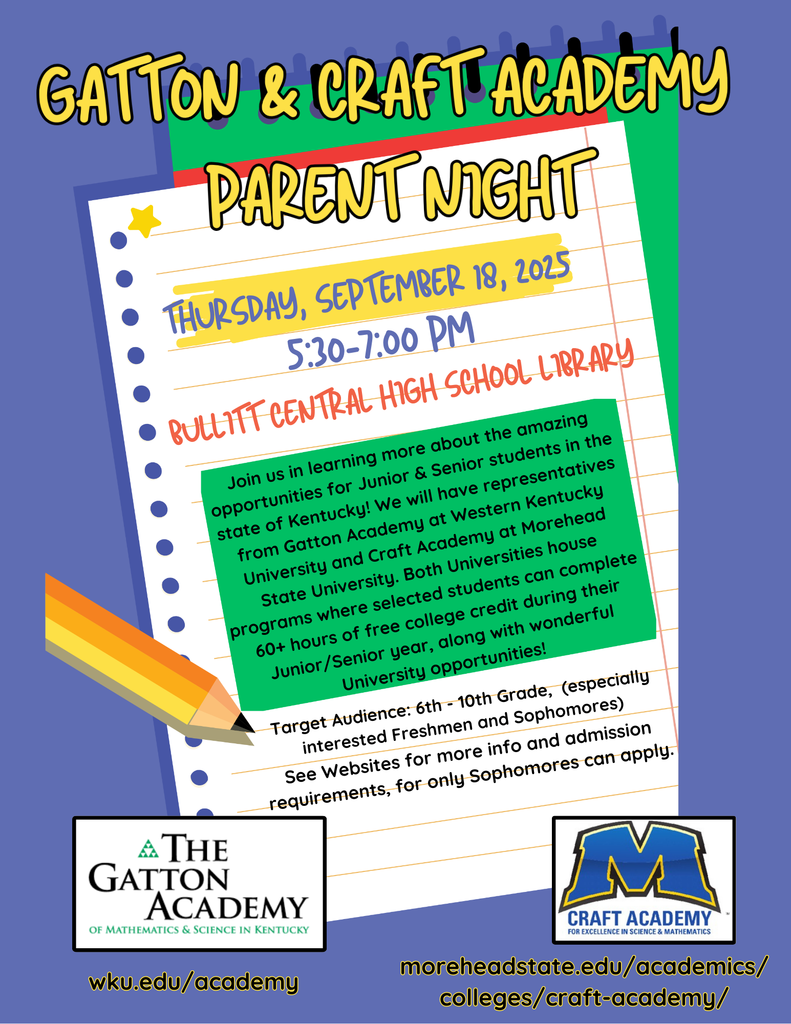 GATTON & CRAFT ACADEMY
PARENT NIGHT
THURSDAY, SEPTEMBER 18, 2025
5:30-7:00 PM
BULLITT CENTRAL HIGH SCHOOL LIBRARY
Join us in learning more about the amazing
opportunities for Junior & Senior students in the
state of Kentucky! We will have representatives
from Gatton Academy at Western Kentucky
University and Craft Academy at Morehead
State University. Both Universities house
programs where selected students can complete
60+ hours of free college credit during their
Junior/Senior year, along with wonderful
University opportunities!
Target Audience: 6th - 10th Grade, (especially
interested Freshmen and Sophomores)
See Websites for more info and admission
requirements, for only Sophomores can apply.
THE
GATTON
ACADEMY
OF MATHEMATICS & SCIENCE IN KENTUCKY
wku.edu/academy
M
CRAFT ACADEMY
FOR EXCELLENCE IN SCIENCE & MATHEMATICS
moreheadstate.edu/academics/
colleges/craft-academy/